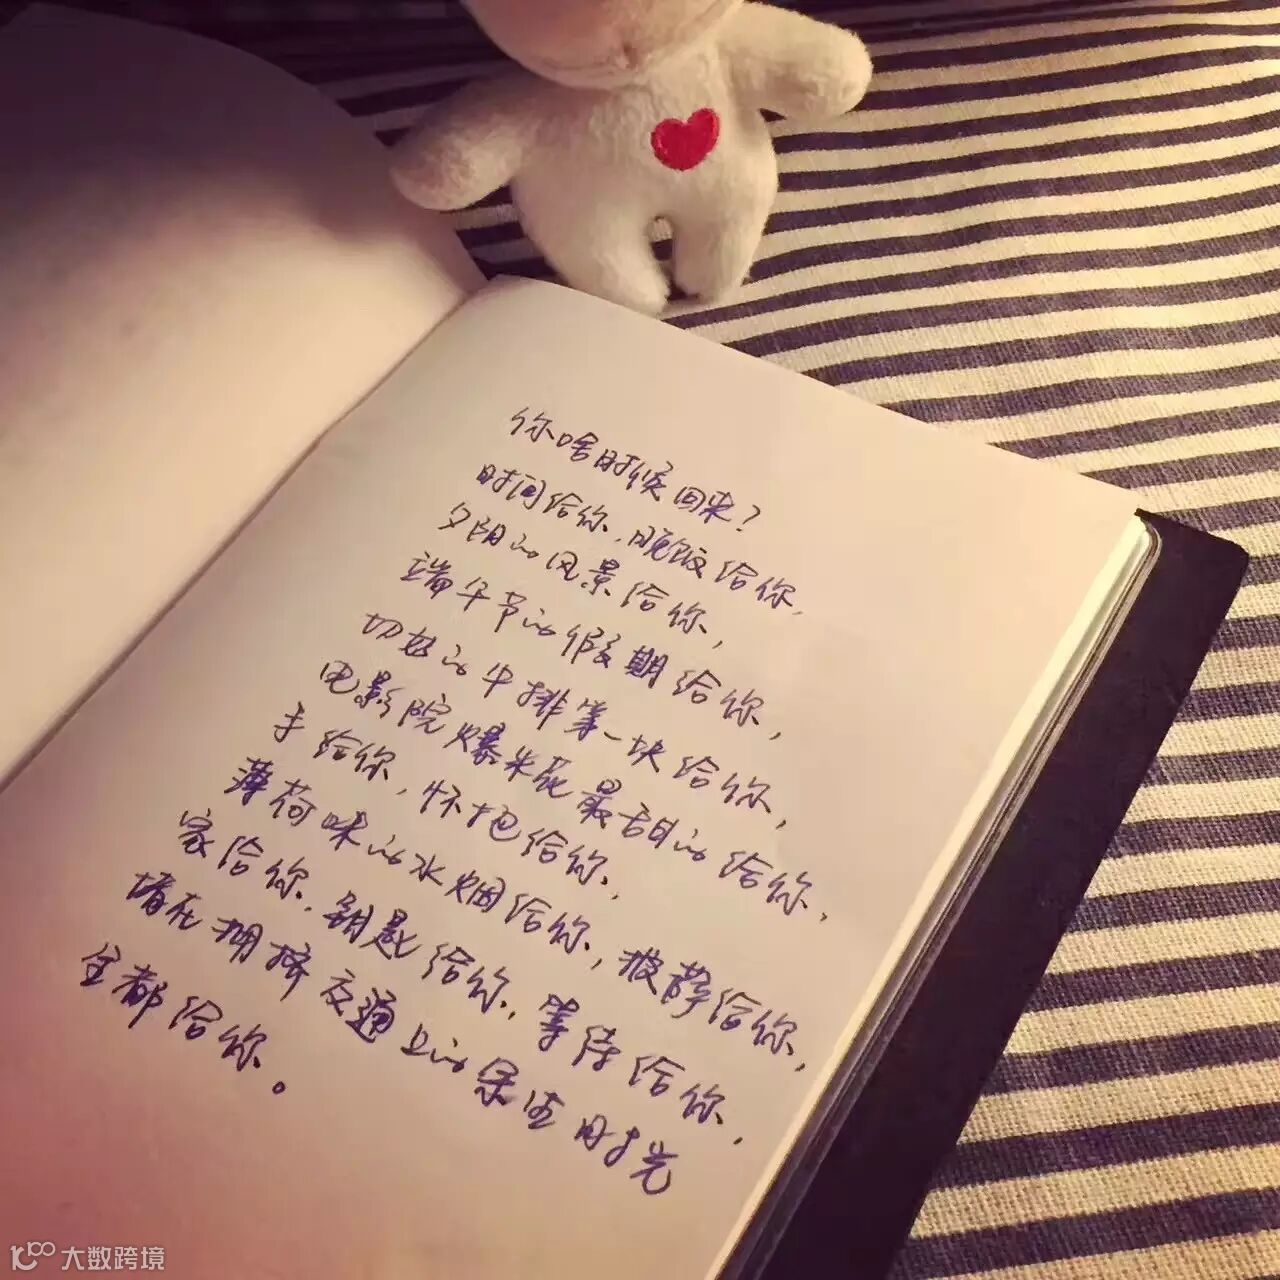 你啥时候回来？
时间给你，晚饭给你，
夕阳的风景给你，
端午节的假期给你，
切好的牛排第一块给你，
电影院爆米花最甜的给你，
手给你，怀抱给你，
薄荷味的水烟给你，寂静给你，
家给你，钥匙给你，等待给你，
堵在拥挤交通上的余生时光
全都给你。
大数跨境